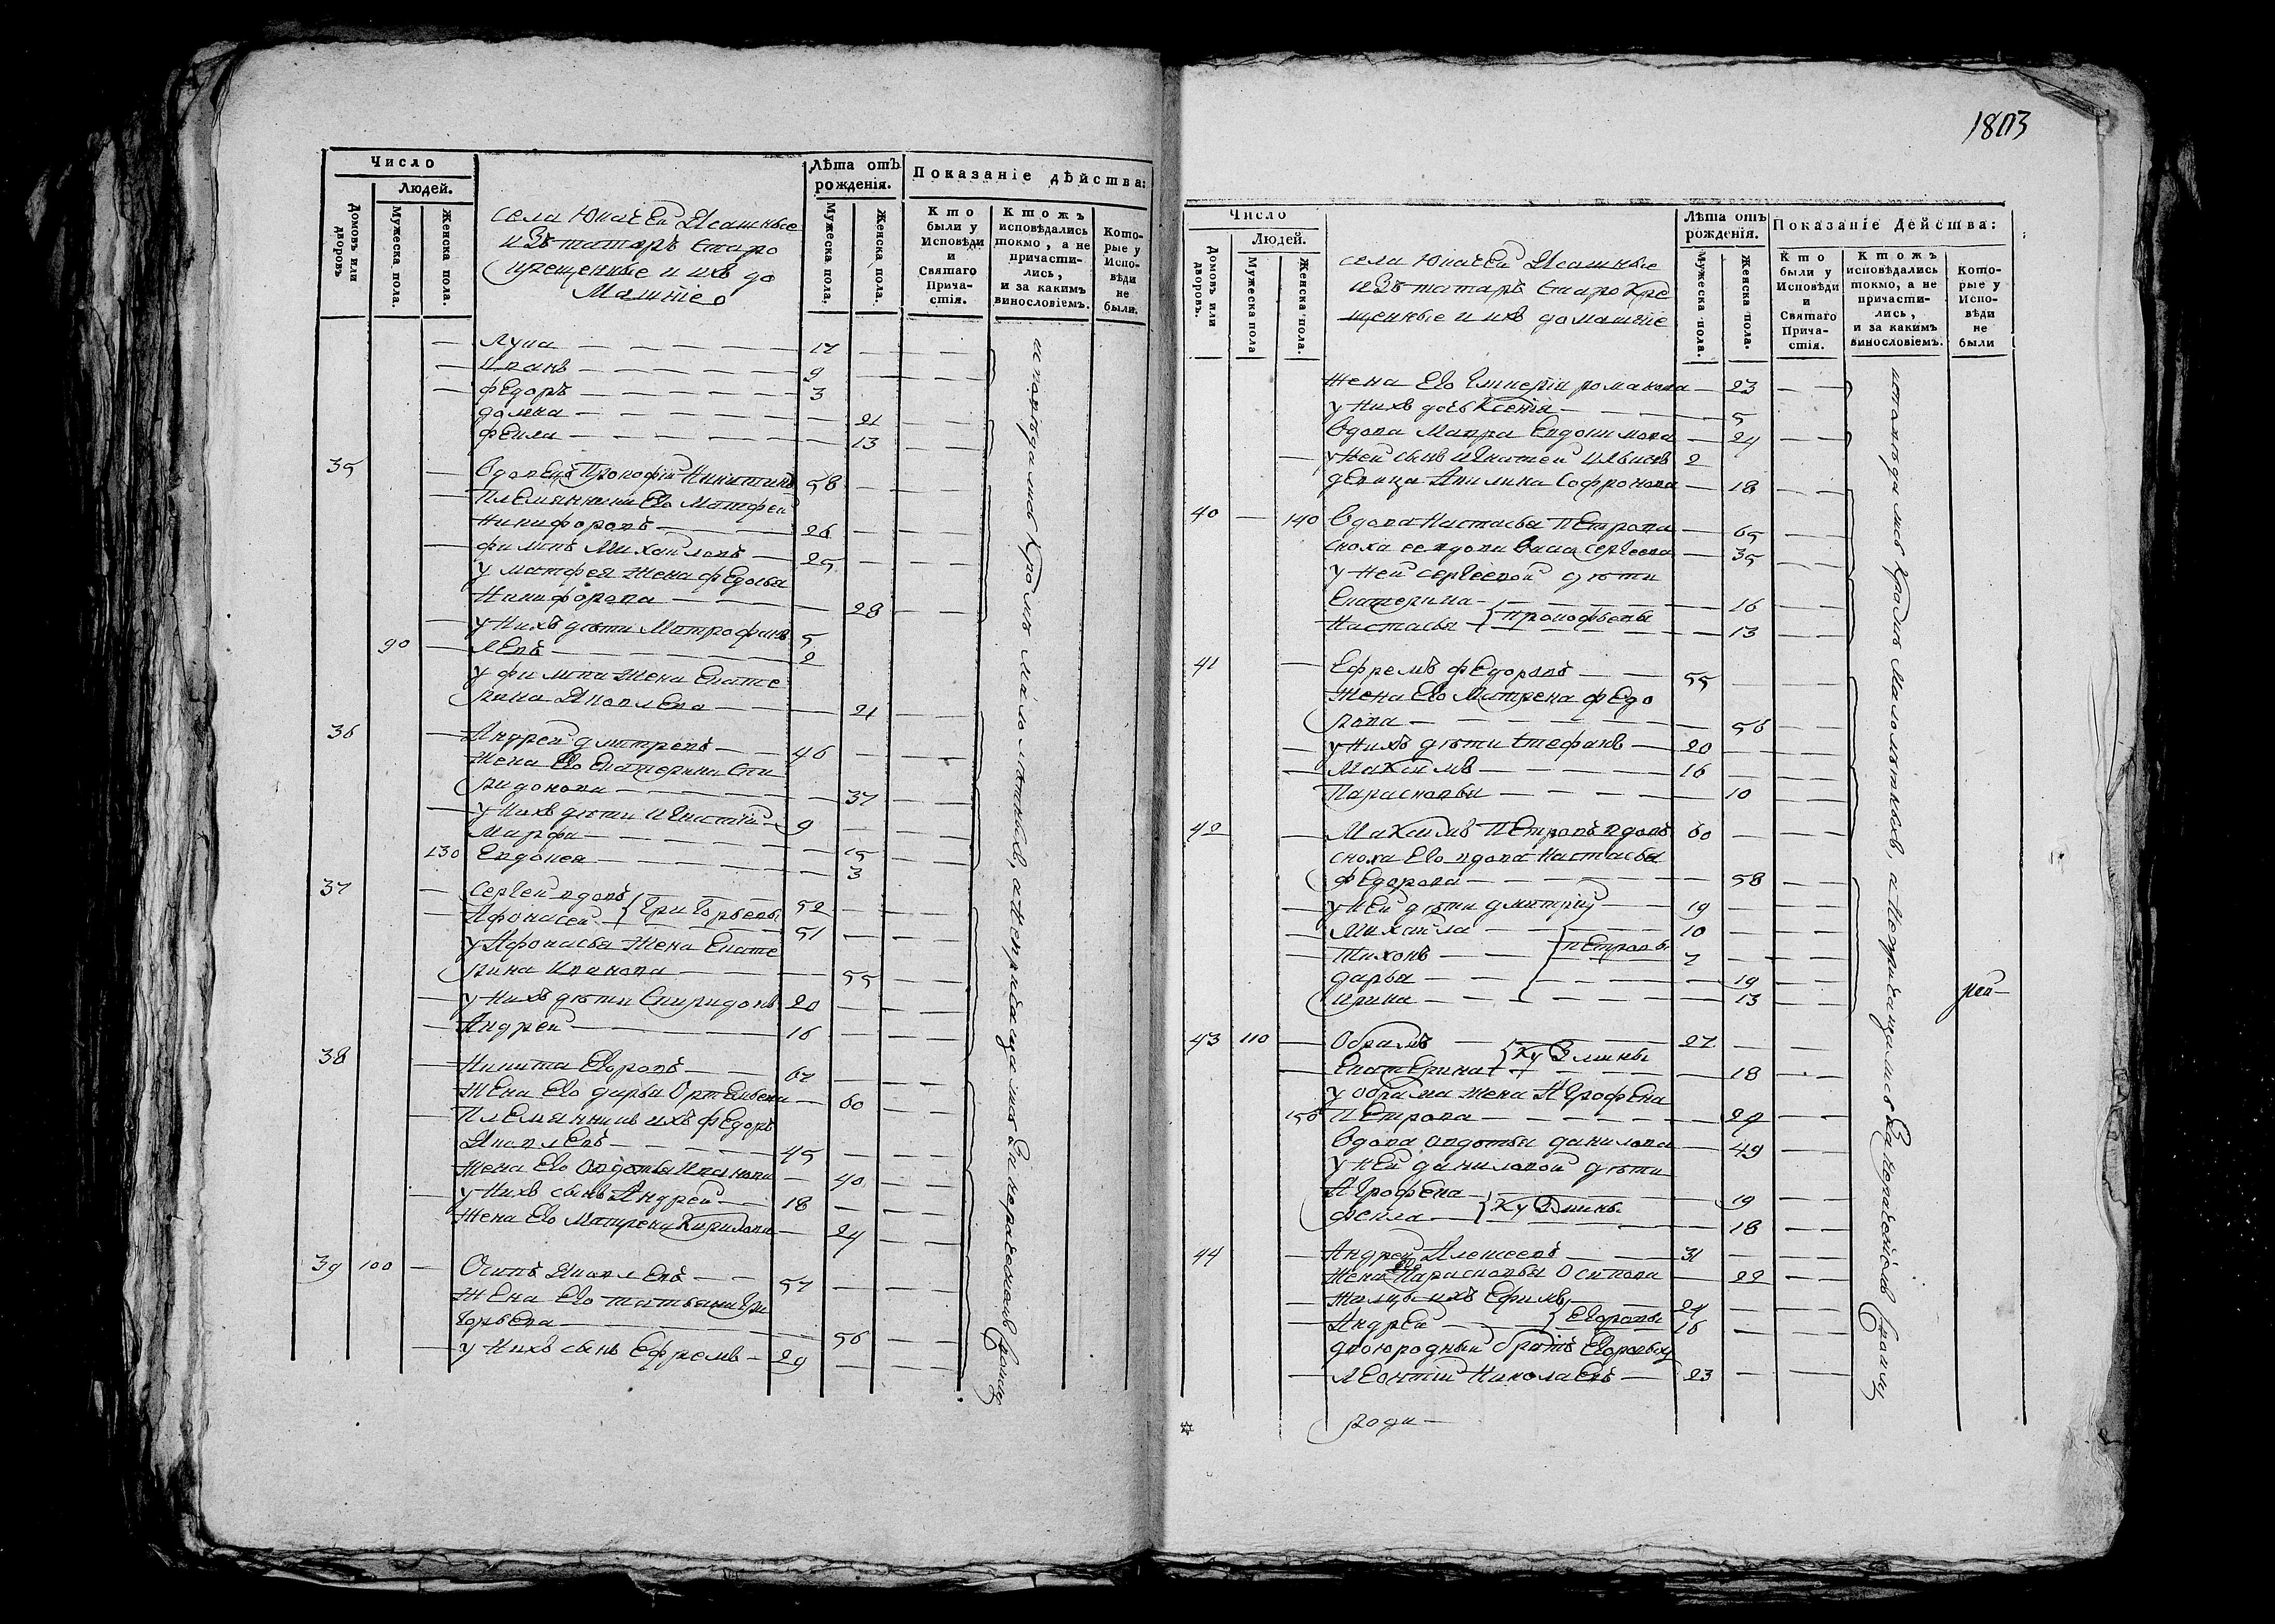 Число
Людей.
Домовъ или дворовъ
Мужеска пола.
Женска пола.
села Юначей Ясашные
изъ татаръ старо
крещенные и ихъ до
машніе
Лѣта отъ рожденія.
Мужеска пола.
Женска пола.
Показаніе дѣйства:
Кто были у Исповѣди и Святаго Прича-стія.
Ктожъ исповѣдались токмо, а не причасти-лись, и за какимъ винословіемъ.
Кото-рые у Испо-вѣди не были.
Лука 17
Иванъ 9
Федоръ 3
21
Фекла 13
35 Вдовецъ Прокофій Никитинъ 58
Племянники Его Матфей
Никифоровъ 26
Филипъ Михайловъ 25
у Матфея жена Федосья
Никифорова 28
у Нихъ дѣти Митрофанъ 5
90 Левъ 2
у Филипа жена Екате
рина Яковлева 21
36 Андрей Дмитревъ 46
жена Его Екатерина Спи
ридонова 37
у Нихъ дѣти Игнатій 9
Марфа 15
130 Евдокея 3
37 Сергей вдовъ Григорьевы 52
Афонасей 51
у Афонасья жена Екате
рина Иванова 55
у Нихъ дѣти Спиридонъ 20
Андрей 16
38 Никита Егоровъ 67
жена Его дарья Ортемьева 60
Племянникъ ихъ Федоръ
Яковлевъ 45
жена Его Овдотья Иванова 40
у Нихъ сынъ Андрей 18
жена Его Матрена Кирилова 24
39 100 Осипъ Яковлевъ 57
жена Его татьяна Гри
горьева 56
у Нихъ сынъ Ефремъ 29
исповѣдались Кромѣ малолѣтныхъ, а не причащались
1803
Число
Людей.
Домовъ или дворовъ.
Мужеска пола
Женска пола.
села Юначей Ясашные
изъ татаръ старо кре
щенные и ихъ домашніе
Лѣта отъ рожденія.
Мужеска пола.
Женска пола.
Показаніе Действа:
Кто были у Исповѣди и Святаго Прича-стія.
Ктожъ исповѣдались токмо, а не причасти-лись, и за какимъ винословіемъ.
Кото-рые у Испо-вѣди не были
жена Его романова 23
у Нихъ дочь Ксенія 5
Вдова Мавра Евдокимова 24
у Ней сынъ 2
девица Акилина Софронова 18
40 140 Вдова Настасья Петрова 65
сноха ее вдова Васа Сергеева 35
у Ней Сергеевой дѣти
Екатерина 16
Настасья Прокофьевы 13
41 Ефремъ Федоровъ 55
жена Его Матрена Федо
рова 56
у Нихъ дѣти Стефанъ 20
Максимъ 16
Парасковья 10
42 Максимъ Петровъ вдовъ 60
сноха Его вдова Настасья
Федорова 58
у Ней дѣти дмитрий 19
Михайла 10
Тихонъ Петровы 7
дарья 19
Ирина 13
43 110 Обрамъ 27
Екатерина Кузмины 18
у Обрама жена Агрофена
150 Петрова 29
Вдова Овдотья данилова 49
у Ней даниловой дѣти
Агрофена 19
Фекла Кузмины 18
44 Андрей Алексеевъ 31
жена Его Парасковья Осипова 22
ихъ Ефимъ 24
Андрей Егоровы 16
двоюродный братъ Егоровыхъ
Леонтій Николаевъ 23
исповѣдались Кромѣ Малолѣтныхъ, а не причащались
рей
роди